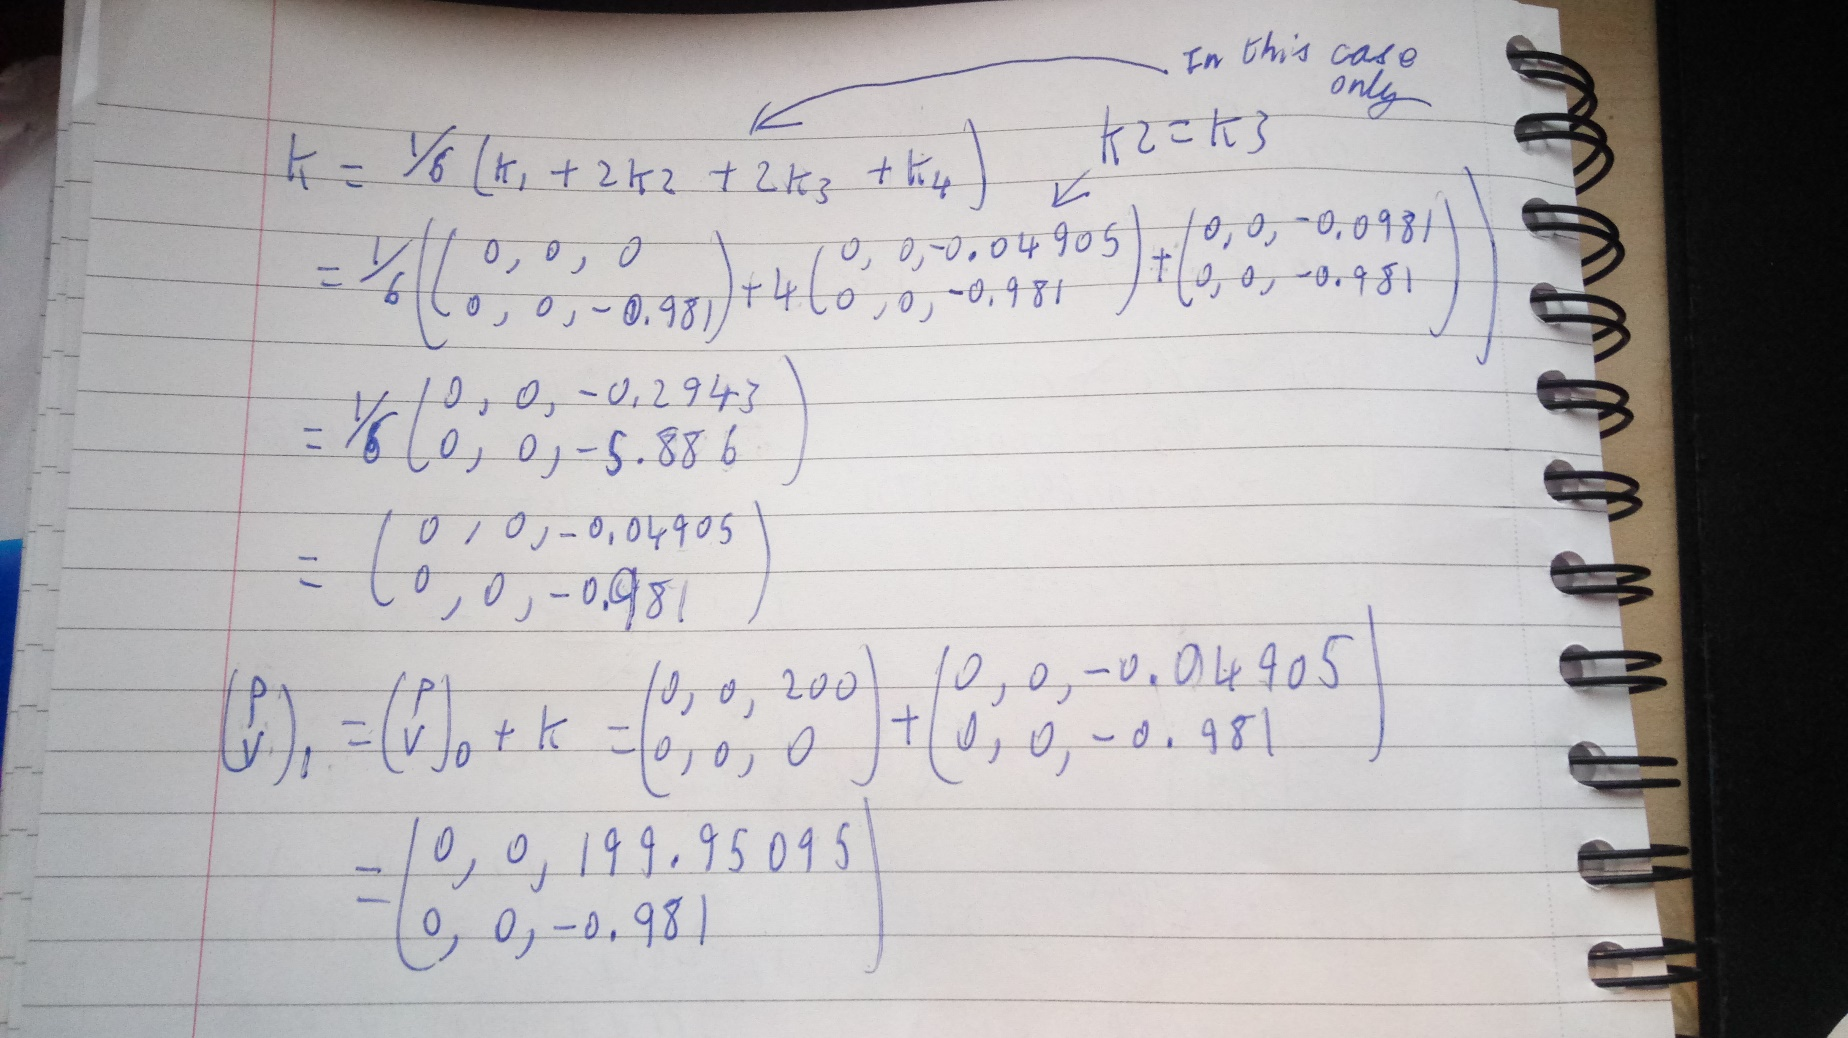 In this case
only
k = 1/6 (k1 + 2k2 + 2k3 + k4) k2 = k3
= 1/6 ((0, 0, 0
0, 0, -0.981) + 4(0, 0, -0.04905
0, 0, -0.981) + (0, 0, -0.0981
0, 0, -0.981))
= 1/6 (0, 0, -0.2943
0, 0, -5.886)
= (0, 0, -0.04905
0, 0, -0.981)
(P
V)1 = (P
V)0 + k = (0, 0, 200
0, 0, 0) + (0, 0, -0.04905
0, 0, -0.981)
= (0, 0, 199.95095
0, 0, -0.981)